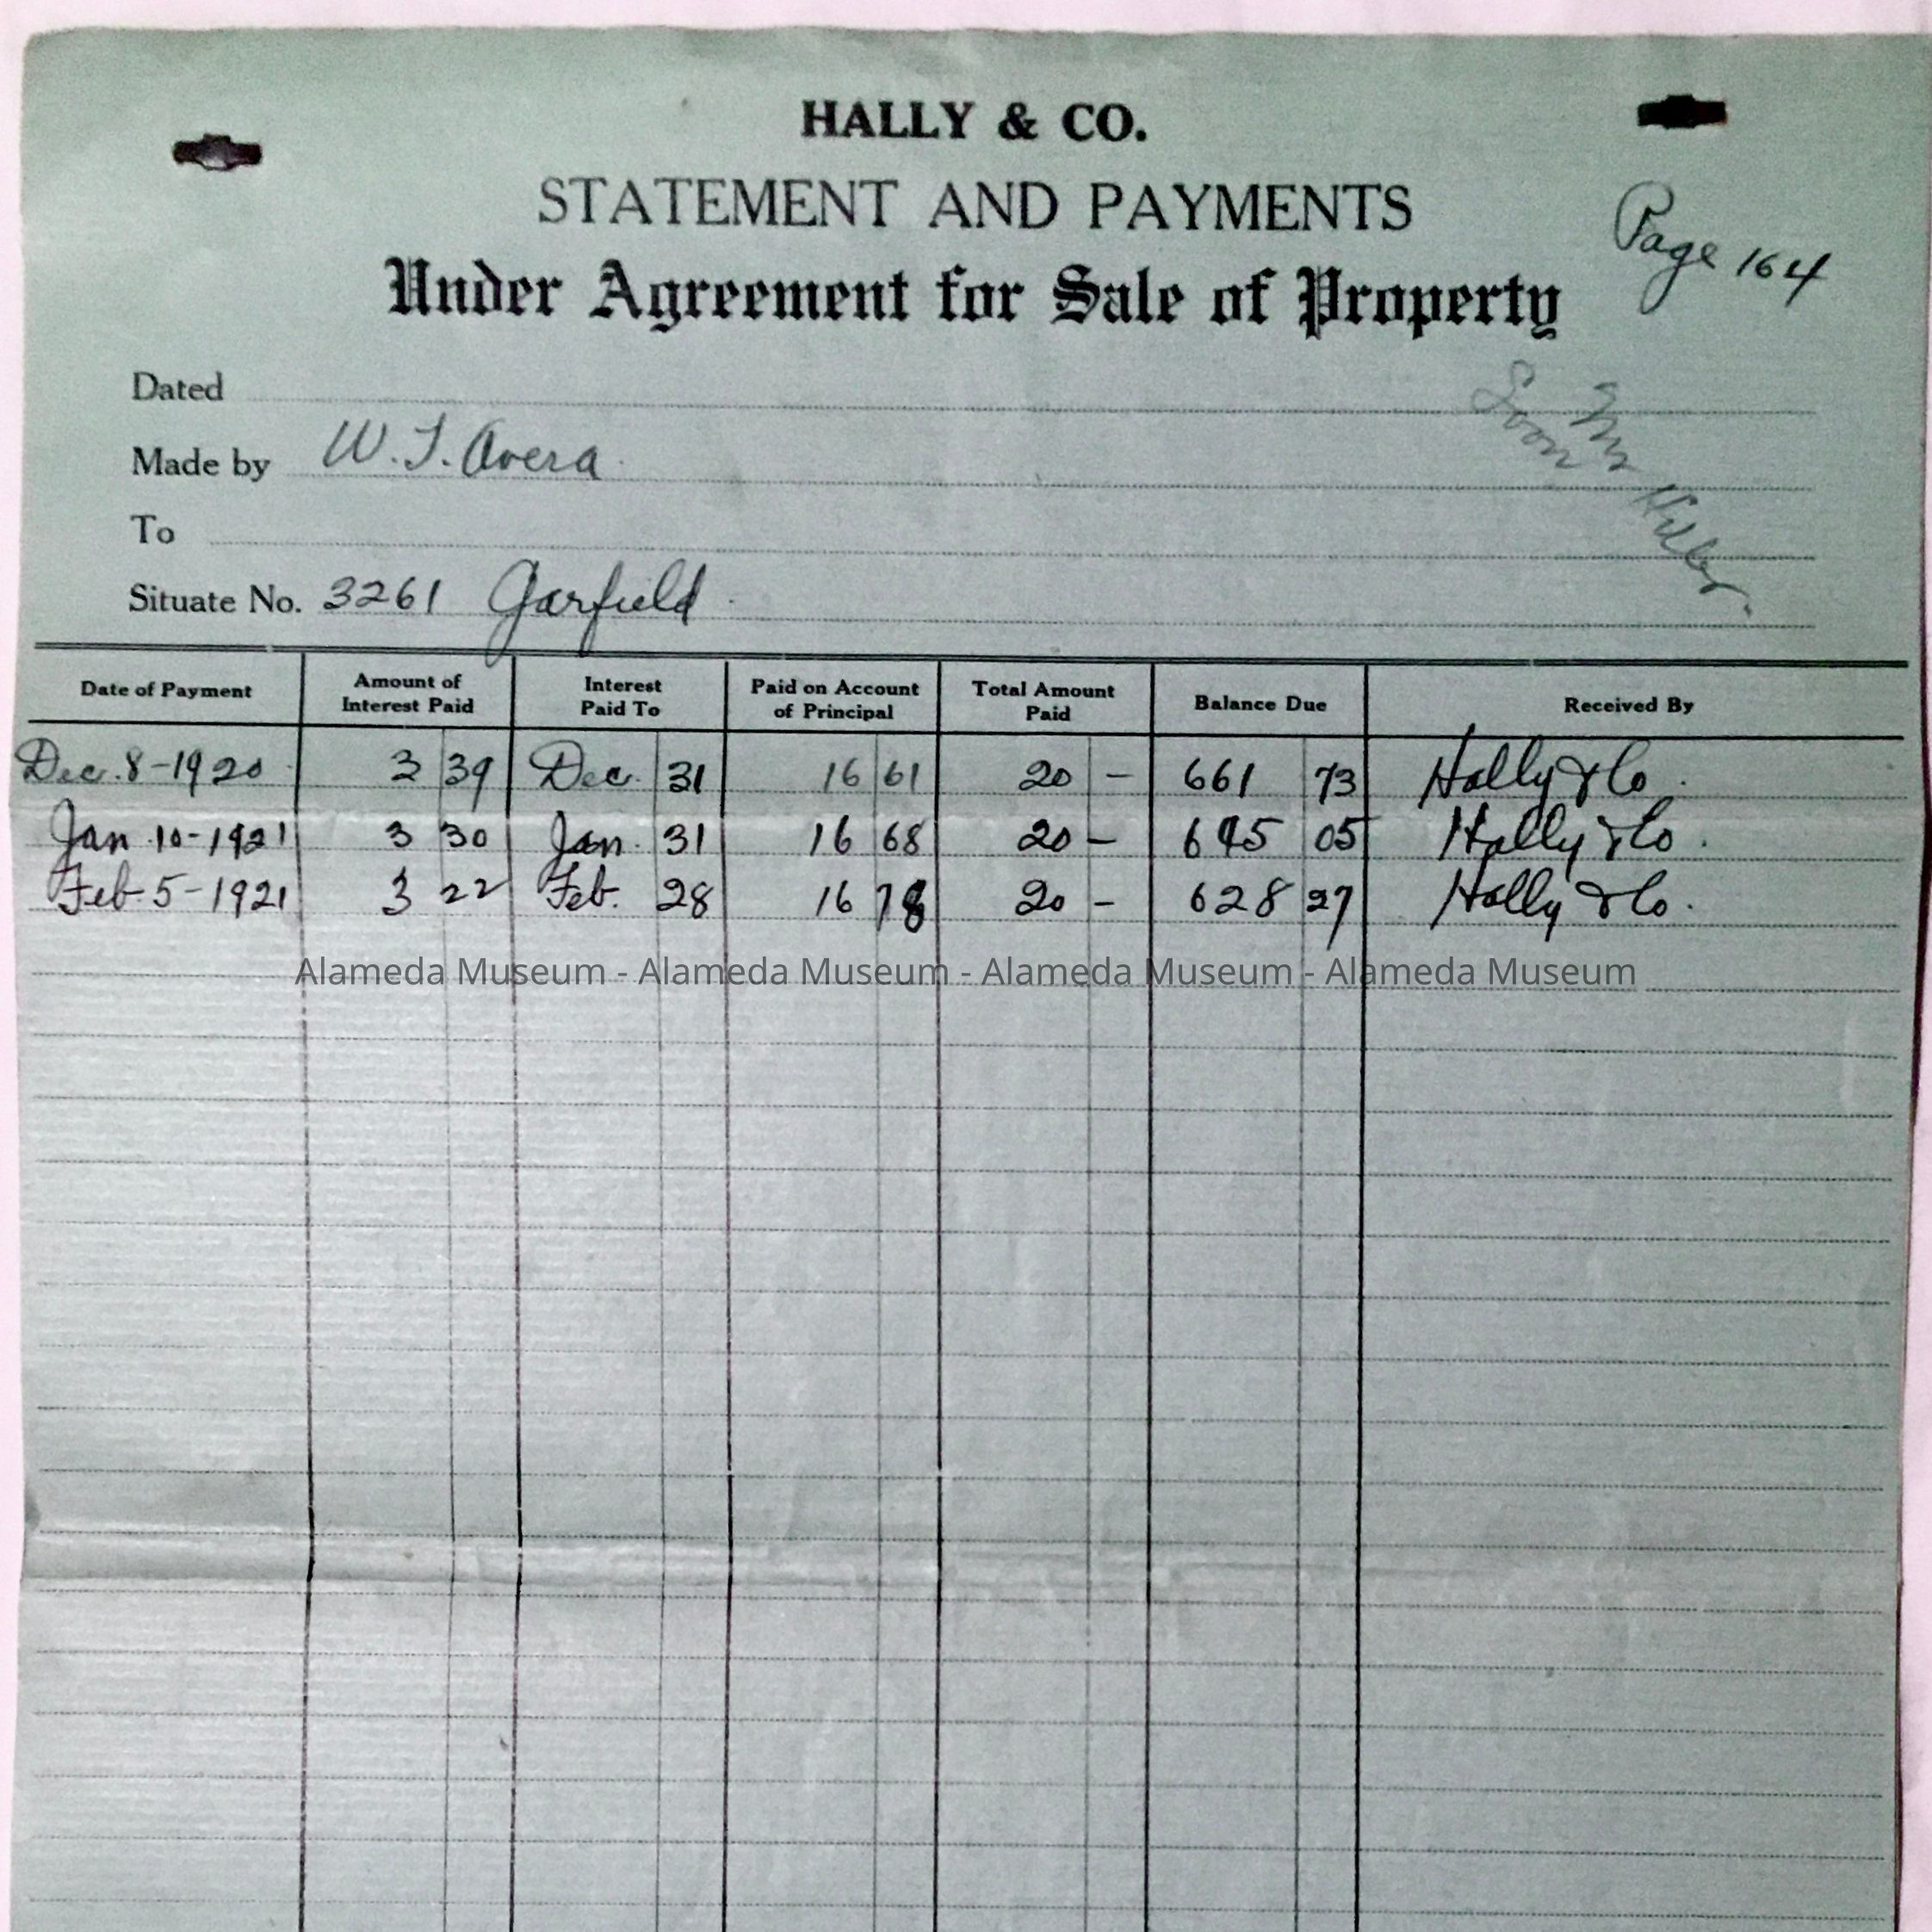 HALLY & CO.
STATEMENT AND PAYMENTS
Page 164
Under Agreement for Sale of Property
Dated
Made by W. J. Avera
To
Situate No. 3261 Garfield
Mr
Date of Payment Amount of Interest Paid Interest Paid To Paid on Account of Principal Total Amount Paid Balance Due Received By
Dec. 8-1920 3 39 Dec. 31 16 61 20 - 661 73 Hally & Co.
Jan 10-1921 3 30 Jan. 31 16 68 20 - 645 05 Hally & Co.
Feb 5-1921 3 22 Feb. 28 16 78 20 - 628 27 Hally & Co.
Alameda Museum - Alameda Museum - Alameda Museum - Alameda Museum